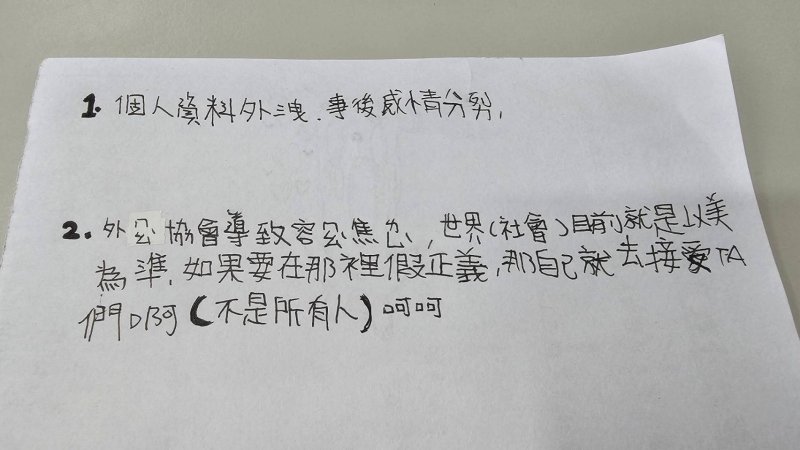 1. 個人資料外洩.事後感情分裂,
2. 外公協會導致容公焦怣,世界(社會)目前就是以美
為準,如果要在那裡假正義,那自己就去接愛TA
們口阿(不是所有人)呵呵